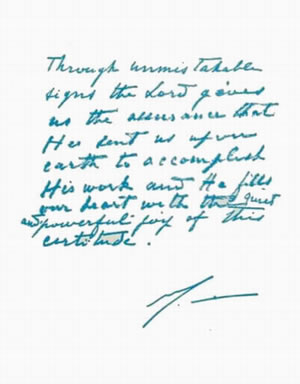 Through unmistakable
signs the Lord gives
us the assurance that
He sent us upon
earth to accomplish
His work and He fills
our heart with the quiet
and powerful joy of this
certitude.
M.